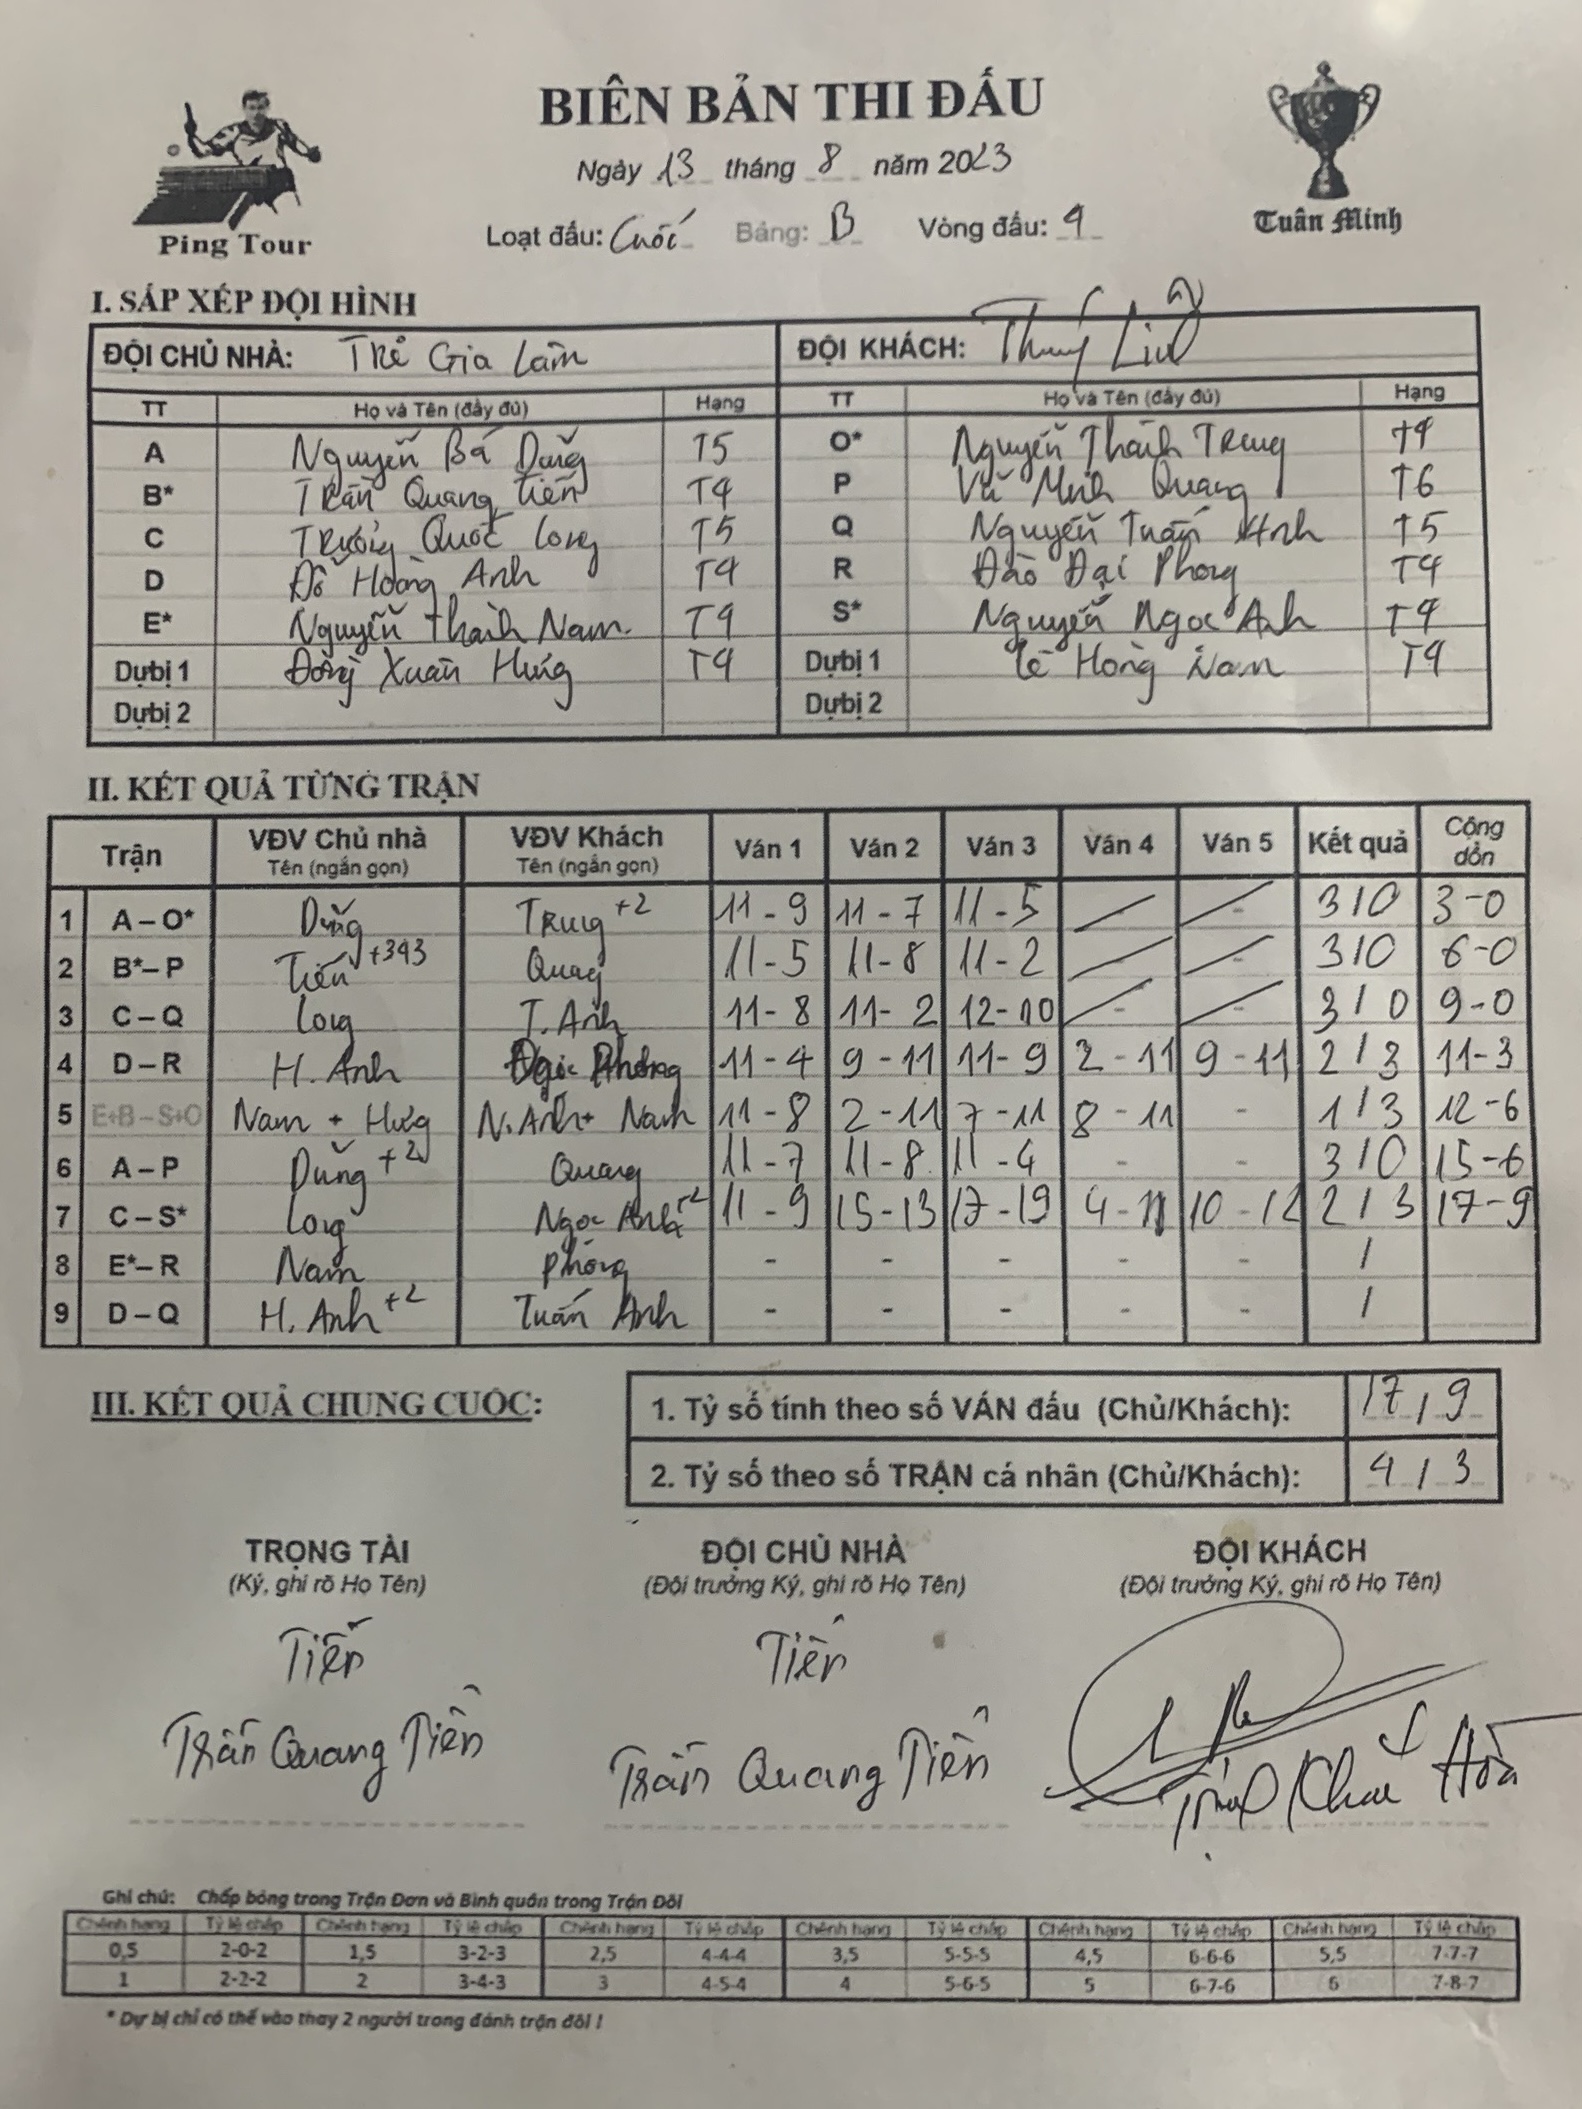 BIÊN BẢN THI ĐẤU
Ngày 13 tháng 8 năm 2023
Loạt đấu: Cuối Bảng: B Vòng đấu: 4
Ping Tour
Tuân Minh
I. SẮP XẾP ĐỘI HÌNH
ĐỘI CHỦ NHÀ: Trẻ Gia Lâm ĐỘI KHÁCH: Thuý Linh
TT Họ và Tên (đầy đủ) Hạng TT Họ và Tên (đầy đủ) Hạng
A Nguyễn Bá Dũng T5 O* Nguyễn Thành Trung T4
B* Trần Quang Tiến T4 P Vũ Minh Quang T6
C Trường Quốc Long T5 Q Nguyễn Tuấn Anh T5
D Đỗ Hoàng Anh T4 R Đào Đại Phong T4
E* Nguyễn Thành Nam. T4 S* Nguyễn Ngọc Anh T4
Dự bị 1 Đồng Xuân Hưng T4 Dự bị 1 Lê Hồng Nam T4
Dự bị 2 Dự bị 2
II. KẾT QUẢ TỪNG TRẬN
Trận VĐV Chủ nhà Tên (ngắn gọn) VĐV Khách Tên (ngắn gọn) Ván 1 Ván 2 Ván 3 Ván 4 Ván 5 Kết quả Cộng dồn
1 A – O* Dũng Trung +2 11 - 9 11 - 7 11 - 5 - - 3 / 0 3 - 0
2 B* – P Tiến +343 Quang 11 - 5 11 - 8 11 - 2 - - 3 / 0 6 - 0
3 C – Q Long T. Anh 11 - 8 11 - 2 12 - 10 - - 3 / 0 9 - 0
4 D – R H. Anh Phong 11 - 4 9 - 11 11 - 9 2 - 11 9 - 11 2 / 3 11 - 3
5 E+B – S+O Nam + Hưng N. Anh + Nam 11 - 8 2 - 11 7 - 11 8 - 11 - 1 / 3 12 - 6
6 A – P Dũng +2 Quang 11 - 7 11 - 8 11 - 4 - - 3 / 0 15 - 6
7 C – S* Long Ngọc Anh +2 11 - 9 15 - 13 17 - 19 4 - 11 10 - 12 2 / 3 17 - 9
8 E* – R Nam Phong - - - - - /
9 D – Q H. Anh +2 Tuấn Anh - - - - - /
III. KẾT QUẢ CHUNG CUỘC:
1. Tỷ số tính theo số VÁN đấu (Chủ/Khách): 17 / 9
2. Tỷ số theo số TRẬN cá nhân (Chủ/Khách): 4 / 3
TRỌNG TÀI ĐỘI CHỦ NHÀ ĐỘI KHÁCH
(Ký, ghi rõ Họ Tên) (Đội trưởng Ký, ghi rõ Họ Tên) (Đội trưởng Ký, ghi rõ Họ Tên)
Tiến Tiến
Trần Quang Tiến Trần Quang Tiến Trịnh Khải Hòa
Ghi chú: Chấp bóng trong Trận Đơn và Bình quân trong Trận Đôi
Chênh hạng Tỷ lệ chấp Chênh hạng Tỷ lệ chấp Chênh hạng Tỷ lệ chấp Chênh hạng Tỷ lệ chấp Chênh hạng Tỷ lệ chấp Chênh hạng Tỷ lệ chấp
0,5 2-0-2 1,5 3-2-3 2,5 4-4-4 3,5 5-5-5 4,5 6-6-6 5,5 7-7-7
1 2-2-2 2 3-4-3 3 4-5-4 4 5-6-5 5 6-7-6 6 7-8-7
* Dự bị chỉ có thể vào thay 2 người trong đánh trận đôi !